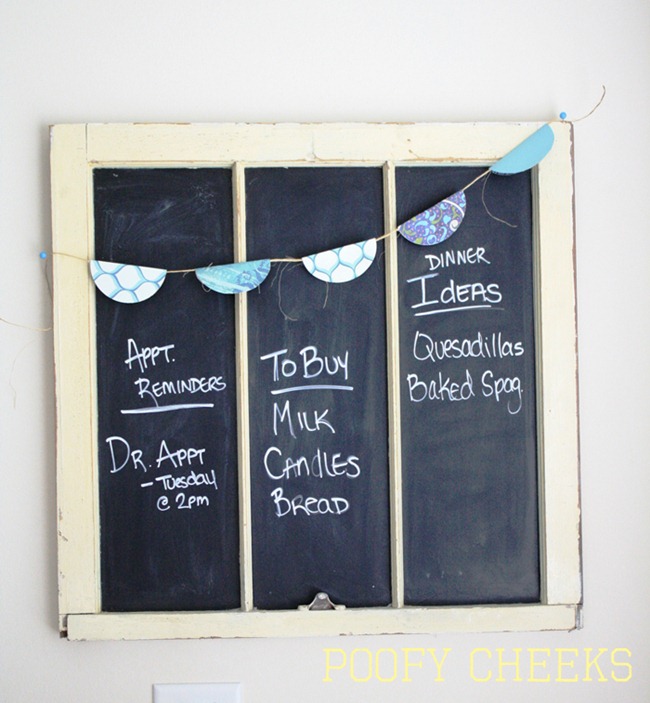 APPT.
REMINDERS
DR. APPT
- TUESDAY
@ 2PM
TO BUY
MILK
CANDLES
BREAD
DINNER
IDEAS
Quesadillas
Baked Spag.
POOFY CHEEKS